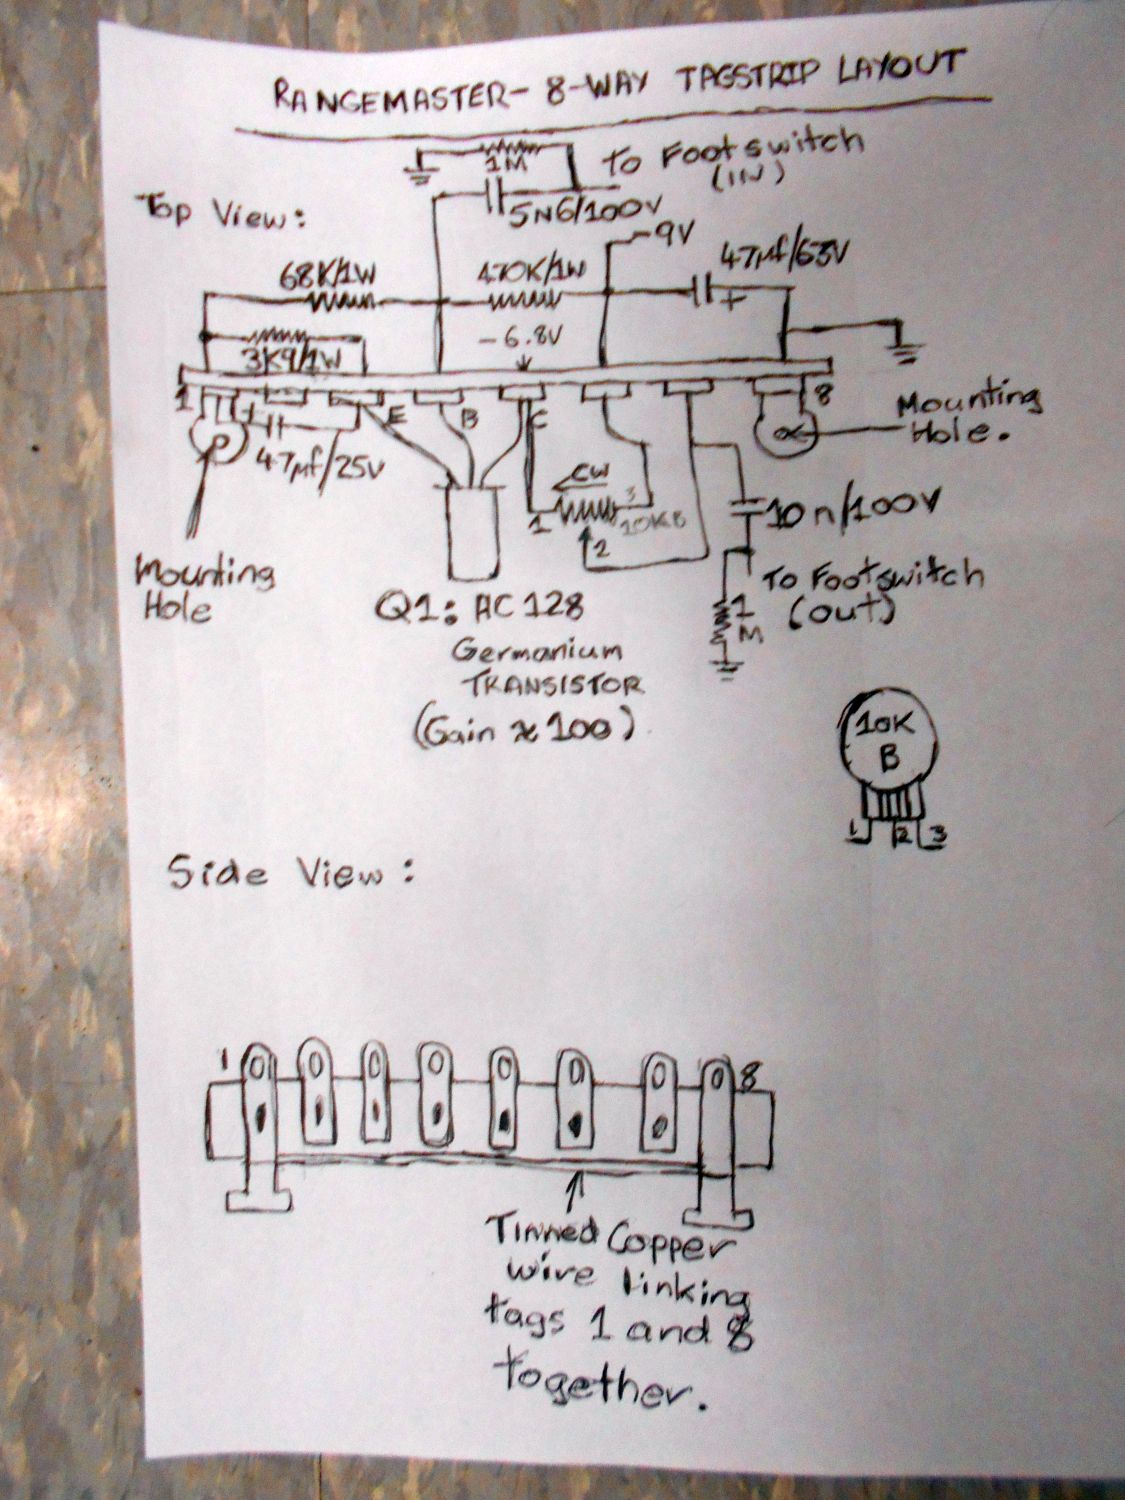 RANGEMASTER- 8-WAY TAGSTRIP LAYOUT
1M
To Footswitch
(IN)
5N6/100V
Top View:
9V
47µf/63V
68K/1W
470K/1W
+
-6.8V
3K9/1W
1
E
B
C
8
Mounting
Hole.
+
47µf/25V
CW
1
3
10KB
2
10n/100V
Mounting
Hole
To Footswitch
(out)
1
M
Q1: AC128
Germanium
TRANSISTOR
(Gain ≈ 100)
10K
B
1 2 3
Side View:
1
8
Tinned Copper
wire linking
tags 1 and 8
together.